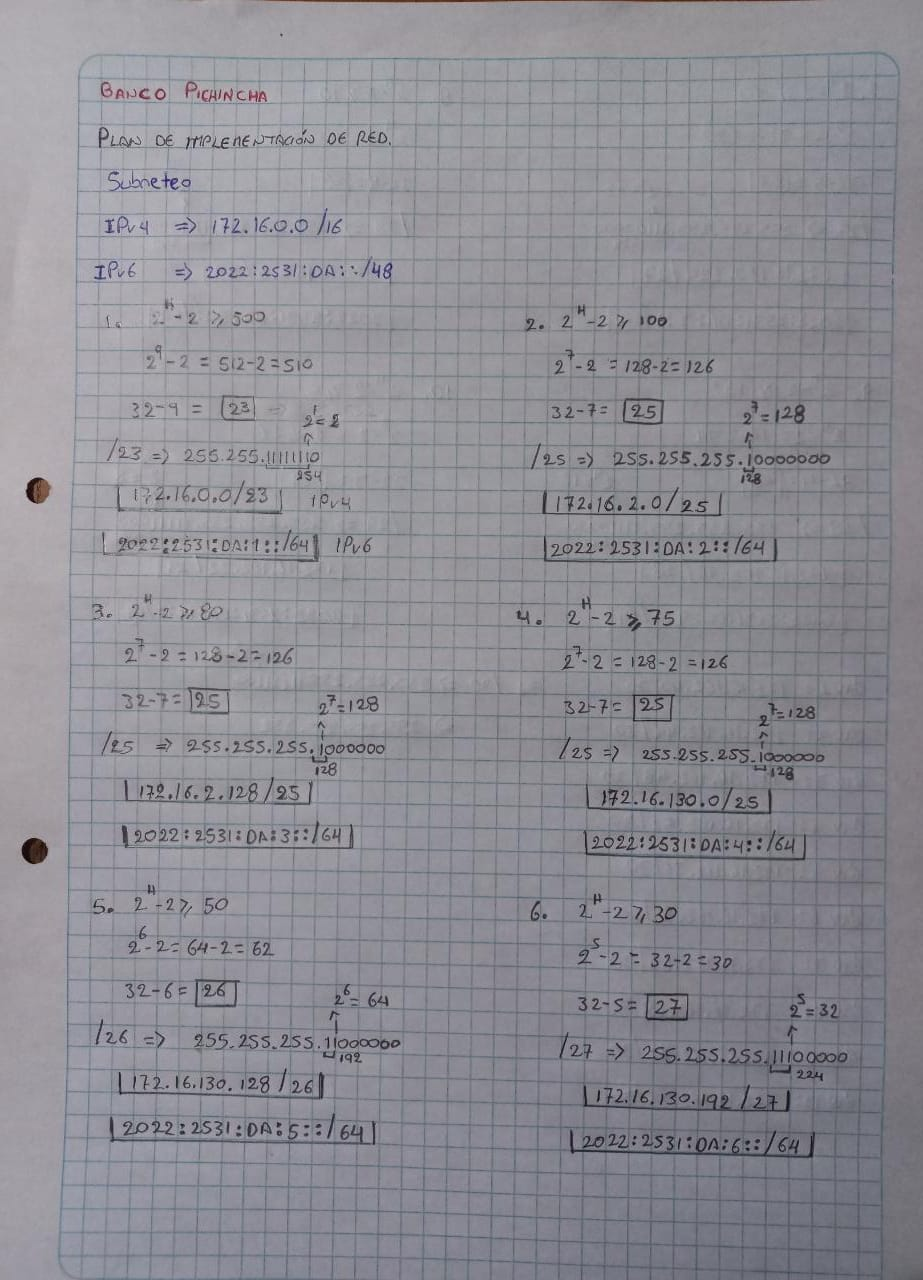 BANCO PICHINCHA
PLAN DE IMPLEMENTACIÓN DE RED.
Subneteo
IPv4 => 172.16.0.0/16
IPv6 => 2022:2531:DA::/48
1. 2^H-2 ≥ 500
2^9-2 = 512-2=510
32-9 = 23
2^1=2
/23 => 255.255.11111110
254
172.16.0.0/23 IPv4
2022:2531:DA:1::/64 IPv6
2. 2^H-2 ≥ 100
2^7-2 = 128-2=126
32-7= 25
2^7=128
/25 => 255.255.255.10000000
128
172.16.2.0/25
2022:2531:DA:2::/64
3. 2^H-2 ≥ 80
2^7-2=128-2=126
32-7= 25
2^7=128
/25 => 255.255.255.1000000
128
172.16.2.128/25
2022:2531:DA:3::/64
4. 2^H-2 ≥ 75
2^7-2 = 128-2 =126
32-7= 25
2^7=128
/25 => 255.255.255.1000000
128
172.16.130.0/25
2022:2531:DA:4::/64
5. 2^H-2 ≥ 50
2^6-2=64-2=62
32-6= 26
2^6= 64
/26 => 255.255.255.11000000
192
172.16.130.128/26
2022:2531:DA:5::/64
6. 2^H-2 ≥ 30
2^5-2 = 32-2=30
32-5= 27
2^5=32
/27 => 255.255.255.11100000
224
172.16.130.192/27
2022:2531:DA:6::/64